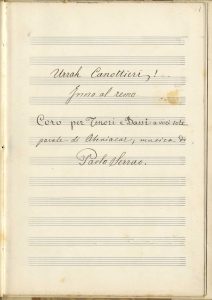 Urrah Canottieri,!..
Inno al remo
Coro per Tenori e Bassi a voci sole
parole di musica di
Paolo Serrao.